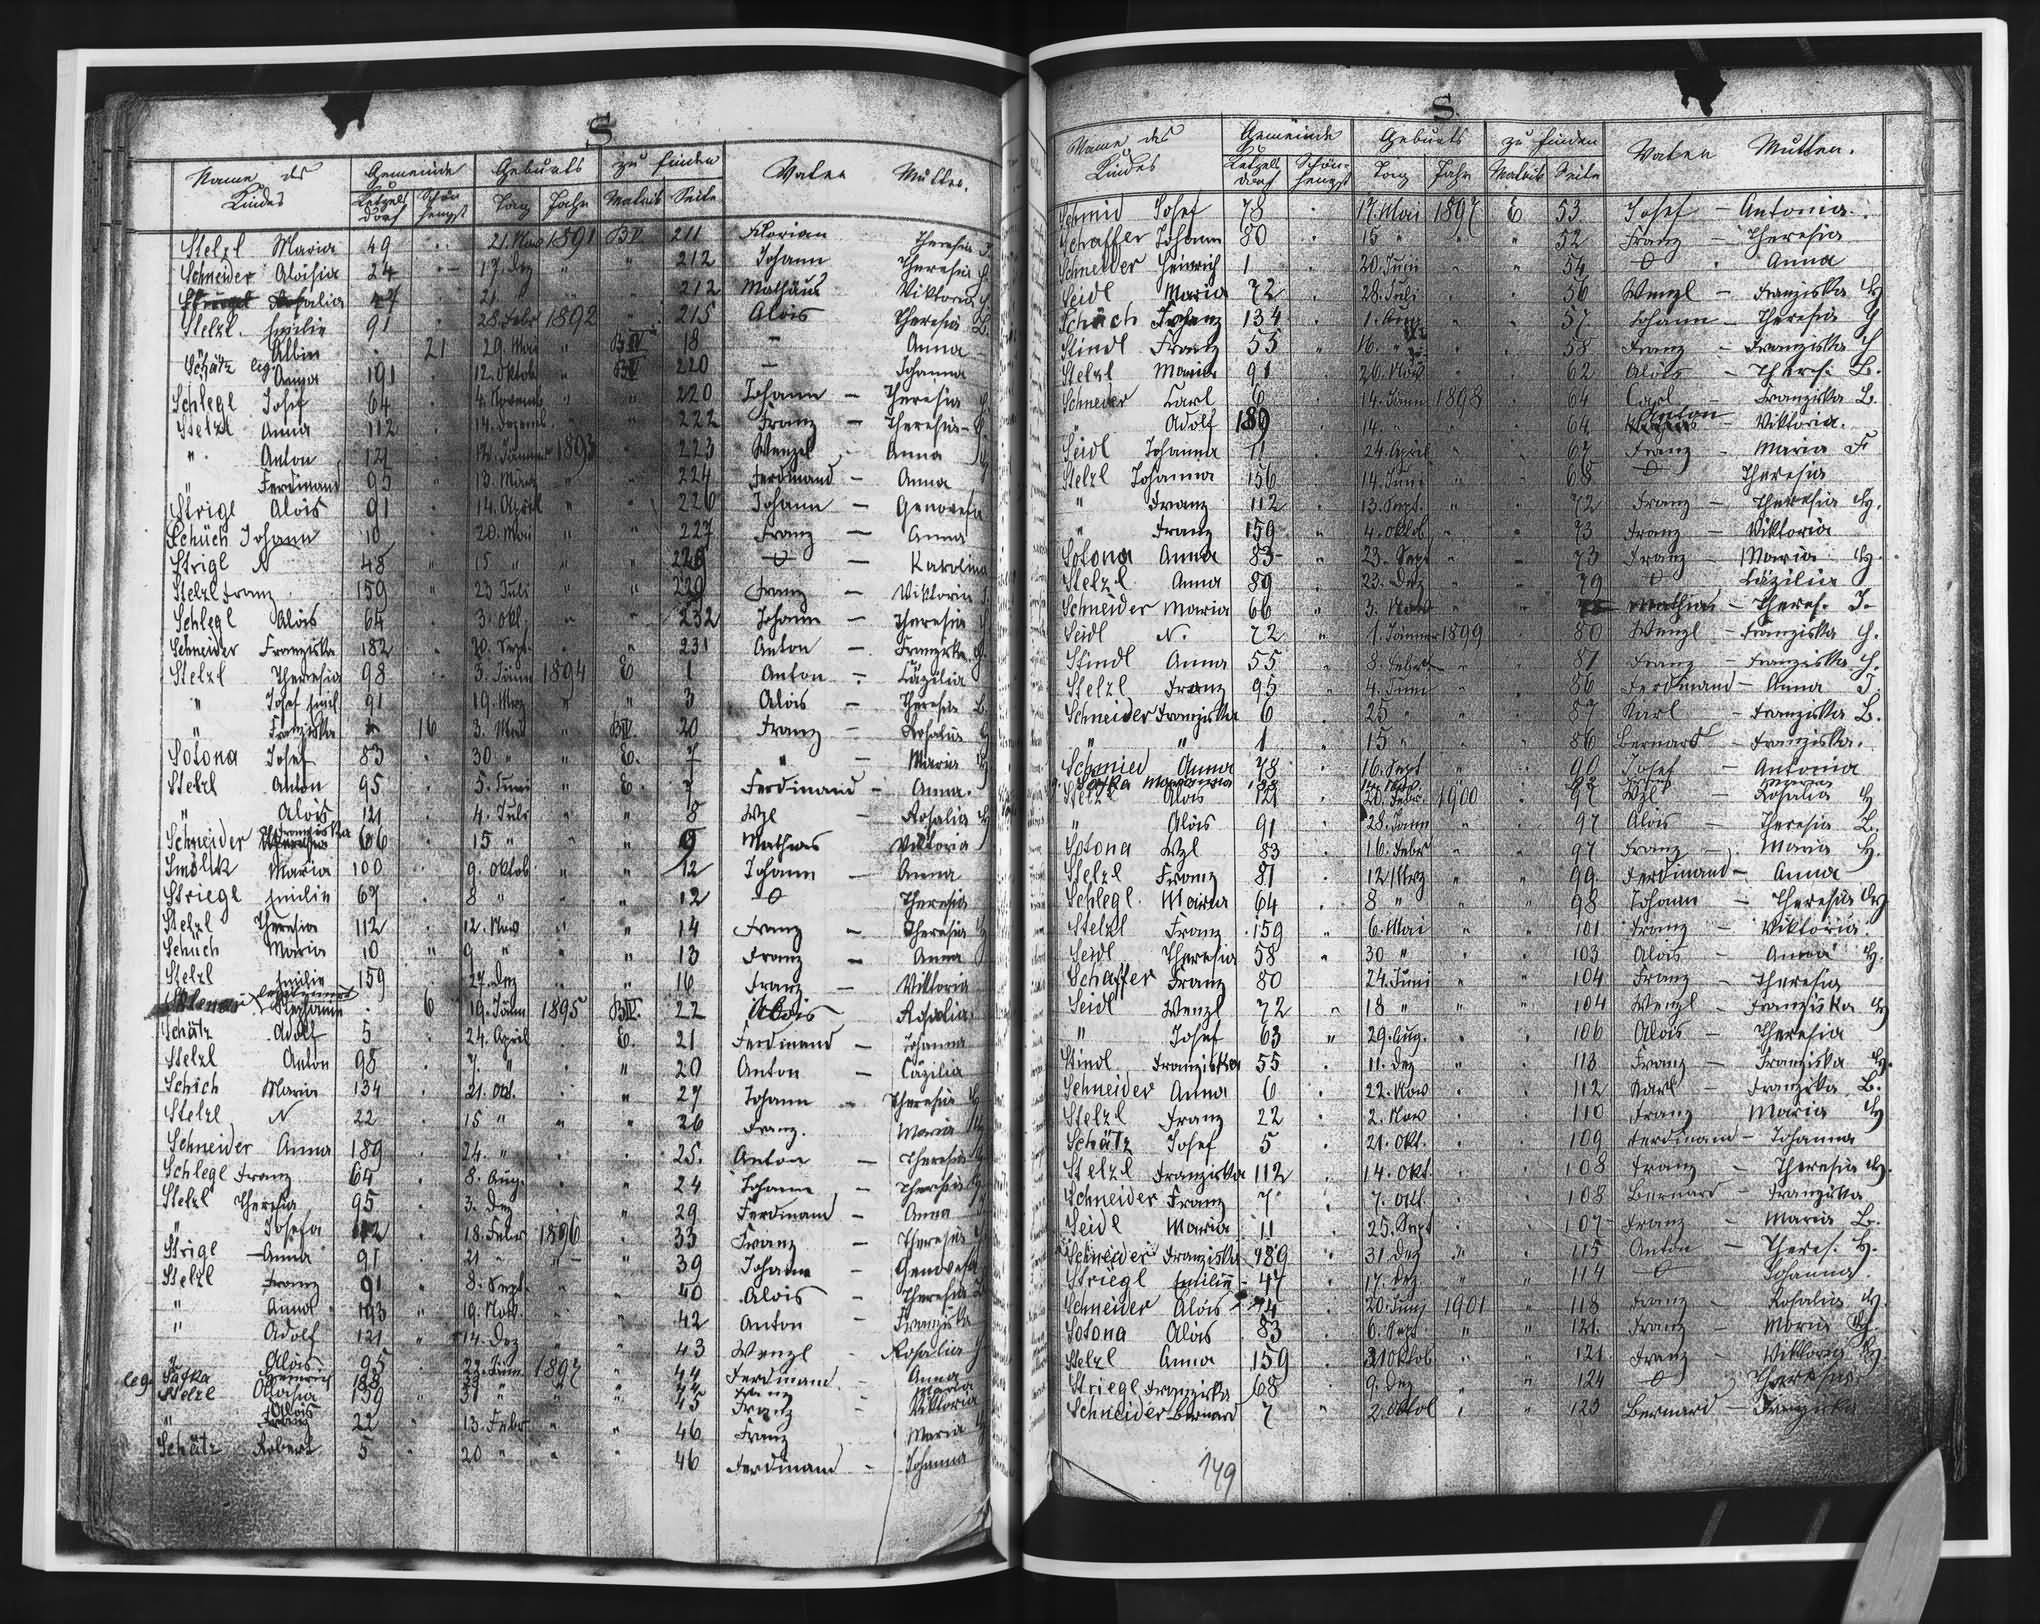 S
Name des Kindes Gemeinde Geburts zu finden Vater Mutter.
Letzelsdorf Schönhengst Tag Jahr Matrik Seite
Stelzl Maria 49 21. Nov 1891 BV 211 Florian Theresia
Schneider Aloisia 24 17. Dez " " 212 Johann Theresia
Rosalia 47 21 " 212 Mathäus Viktoria
Stelzl. Emilie 91 28. Febr 1892 " 215 Alois Theresia B.
Albin 21 29. Mai " BIV 18 — Anna —
Schätz leg. Anna 191 12. Oktob " BV 220 — Johanna
Schlegl Josef 64 4. Novemb " " 220 Johann — Theresia
Stelzl Anna 112 14. Dezemb " " 222 Franz — Theresia
" Anton 121 12. Jänner 1893 " 223 Wenzel Anna
" Ferdinand 95 13. März " 224 Ferdinand — Anna
Strigl Alois 91 14. April " 226 Johann — Genovefa
Schüch Johann 10 20. Mai " " 227 Franz — Anna
Strigl N 48 " 15 " " " 228 O — Karolina
Stelzl Franz 159 " 23 Juli " " 229 Franz — Viktoria
Schlegl Alois 64 3. Okt. " " 232 Johann — Theresia
Schneider Franziska 182 20. Sept. " " 231 Anton — Franziska
Stelzl Theresia 98 3. Jänn 1894 E 1 Anton — Cäzilia
" Josef 91 19. Mrz " " 3 Alois — Theresia B
" Franziska 16 3. Mai " BIV. 20 Franz — Rosalia
Sotona Josef 83 30 " " E. 7 " — Maria
Stelzl Anton 95 5. Juni " E. 7 Ferdinand — Anna.
" Alois 121 4. Juli " " 8 Wzl — Rosalia
Schneider Franziska 66 15 " " " 9 Mathias Viktoria
Smolik Maria 100 9. Oktob " " 12 Johann — Anna
Striegl Emilie 67 8 " " " 12 O Theresia
Stelzl Theresia 112 12. Nov " " 14 Franz — Theresia
Schuch Maria 10 " 9 " " " 13 Franz — Anna
Stelzl Emilie 159 27. Dez " " 16 Franz — Viktoria
6 19. Jänn 1895 BIV. 22 Alois Rosalia
Schätz Adolf 5 24. April E. 21 Ferdinand — Johanna
Stelzl Anton 98 7. " " 20 Anton — Cäzilia
Schich Maria 134 21. Okt. " 27 Johann — Theresia
Stelzl N 22 15 " " " 26 Franz. Maria
Schneider Anna 189 24. " 25. Anton — Theresia
Schlegl Franz 64 8. Aug. 24 Johann — Theresia
Stelzl Theresia 95 3. Dez " 29 Ferdinand — Anna
" Josefa 112 18. Febr 1896 33 Franz — Theresia
Strigl Anna 91 21 " " 39 Johann — Genovefa
Stelzl Franz 91 8. Sept. " 40 Alois — Theresia B
" Anna 193 " 19. Nov. " 42 Anton — Franziska
" Adolf 121 " 14. Dez " 43 Wenzl Rosalia
" Alois 95 22. Jänn 1897 " 44 Ferdinand Anna
leg. Safka Heinrich 188 Maria
Stelzl Aloisia 159 31 " " " 45 Franz — Viktoria
" Alois 22 13. Febr " " 46 Franz Maria
Schätz Robert 5 20 " " 46 Ferdinand — Johanna
S.
Name des Kindes Gemeinde Geburts zu finden Vater Mutter.
Letzelsdorf Schönhengst Tag Jahr Matrik Seite
Schmid Josef 78 17. Mai 1897 E 53. Josef — Antonia.
Schaffer Johann 80 15 " " " 52 Franz — Theresia
Schneider Heinrich 1 20. Juni " " 54 O Anna
Seidl Maria 72 28. Juli " 56 Wenzl — Franziska
Schüch 134 1. Aug " 57. Johann — Theresia
Stindl Franz 55 " 16. " 58 Franz — Franziska
Stelzl Maria 91 26. Nov 62 Alois — Theres. B.
Schneider Carl 6 14. Jänn 1898 " 64 Carl — Franziska B.
" Adolf 189 14. " " 64 Anton — Viktoria.
Seidl Johanna 11 24 April " 67 Franz — Maria F
Stelzl Johanna 156 14. Juni " " 68 O Theresia
" Franz 112 13. Sept. " " 72 Franz — Theresia
" Franz 159 4. Oktob " " 73 Franz — Viktoria
Sotona Anna 83 23. Sept " 73 Franz — Maria
Stelzl Anna 89 23. Dez " " 79 O Cäzilia
Schneider Maria 66 " 3. Nov " " Mathias — Theres. J.
Seidl N. 72 " 1. Jänner 1899 " 80 Wenzl — Franziska
Stindl Anna 55 " 8. Febr " 81 Franz — Franziska
Stelzl Franz 95 " 4. Juni " 86 Ferdinand — Anna J.
Schneider Franziska 6 25 " " 87 Karl — Franziska B.
" " 1 15 " " 86 Bernard — Franziska.
Schmied Anna 78 16. Sept " 90 Josef — Antonia
Safka Marianna 188
Stelzl Alois 121 20. Febr. 1900 97 Wzl — Rosalia
" Alois 91 28. Jänn " 97 Alois — Theresia B.
Sotona Wzl 83 16. Febr " " 97 Franz — Maria
Stelzl Franz 87 12 Mrz " " 99. Ferdinand — Anna
Schlegl. Maria 64 8 " " " 98 Johann — Theresia
Stelzl Franz 159 " 6. Mai " " 101 Franz — Viktoria.
Seidl Theresia 58 " 30 " " " 103 Alois — Anna
Schaffer Franz 80 24. Juni " " 104 Franz — Theresia
Seidl Wenzl 72 " 18 " " " 104 Wenzl — Franziska
" Josef 63 " 29. Aug. " " 106 Alois — Theresia
Stindl Franziska 55 11. Dez " " 113 Franz — Franziska
Schneider Anna 6 22. Nov " " 112 Karl — Franziska B.
Stelzl Franz 22 2. Nov " " 110 Franz Maria
Schätz Josef 5 21. Okt. " " 109 Ferdinand — Johanna
Stelzl Franziska 112 14. Okt. " 108 Franz — Theresia
Schneider Franz 7. 7. Okt. " 108 Bernard — Franziska
Seidl Maria 11 25. Sept " 107 Franz — Maria B.
Schneider Franziska 189 31. Dez " 115 Anton — Theres.
Striegl Emilie 47 17. Dez. " " 114 O Johanna.
Schneider Alois 74 20. Juni 1901 " 118 Franz — Rosalia
Sotona Alois 83 6. Sept " " 121. Franz — Maria
Stelzl Anna 159 31 Oktob " 121. Franz — Viktoria
Striegl Franziska 68 9. Dez " " 124 O Theresia
Schneider Bernard 7 " 2. Oktob " " 123 Bernard — Franziska
149